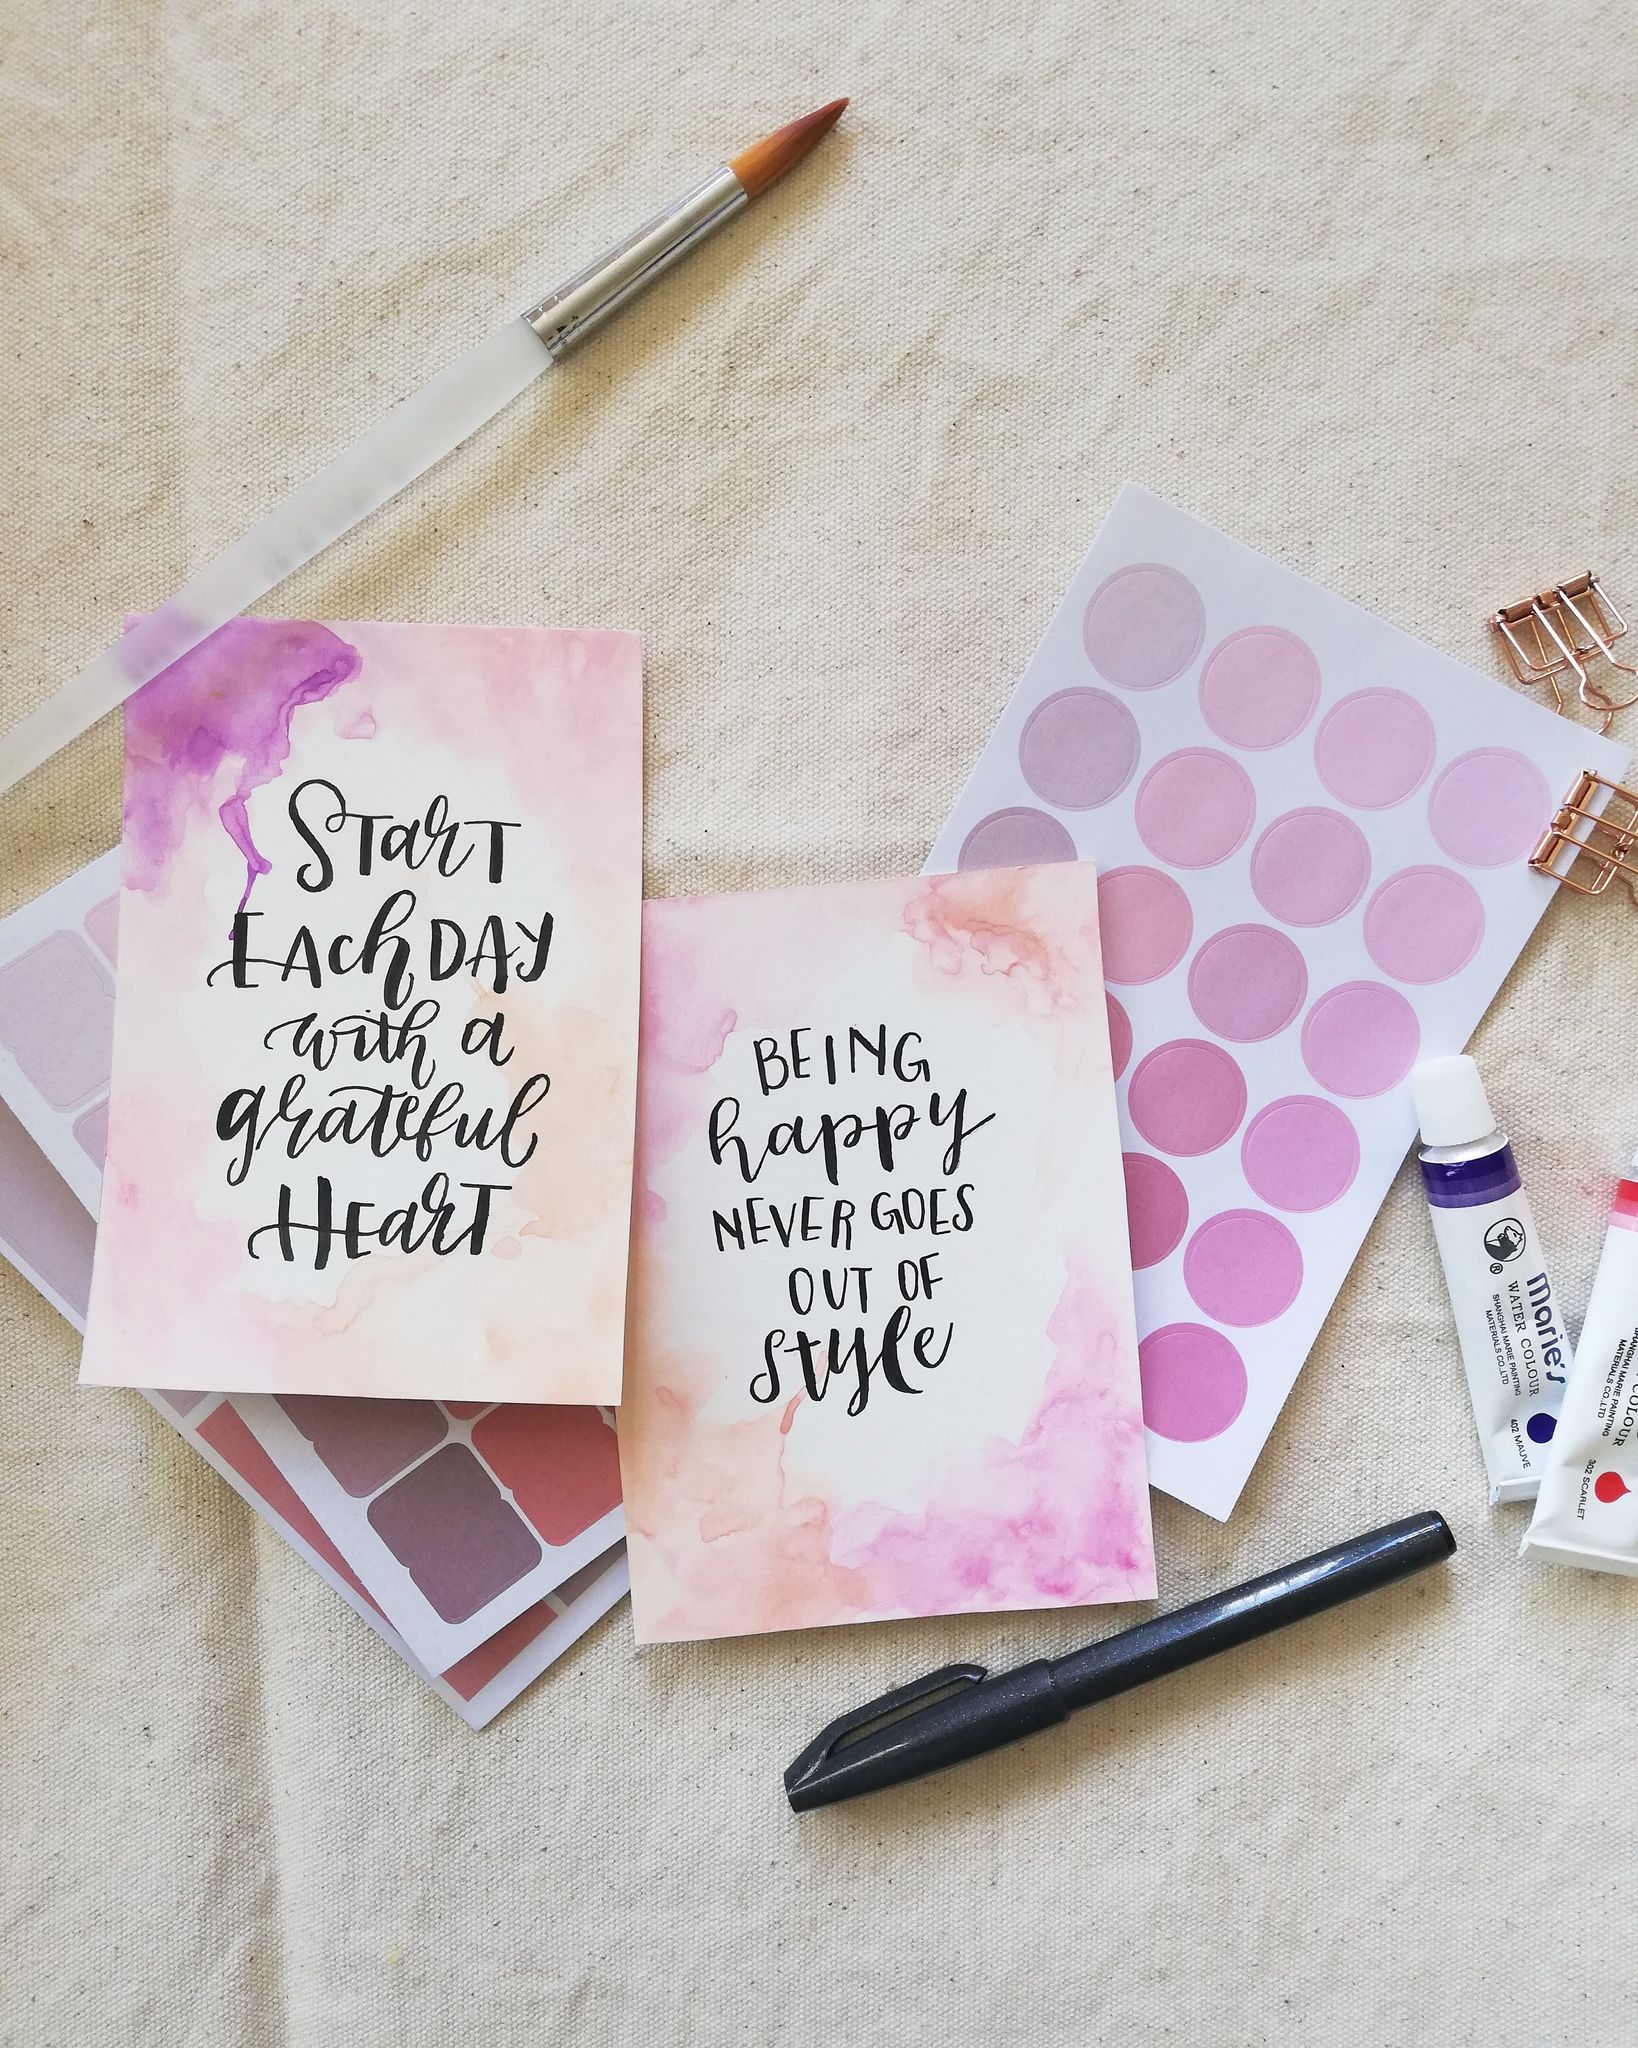 START
EACH DAY
with a
grateful
HEART
BEING
happy
NEVER GOES
OUT OF
style
marie's
WATER COLOUR
SHANGHAI MARIE PAINTING
MATERIALS CO.,LTD
402 MAUVE
COLOUR
SHANGHAI MARIE PAINTING
MATERIALS CO.,LTD
302 SCARLET